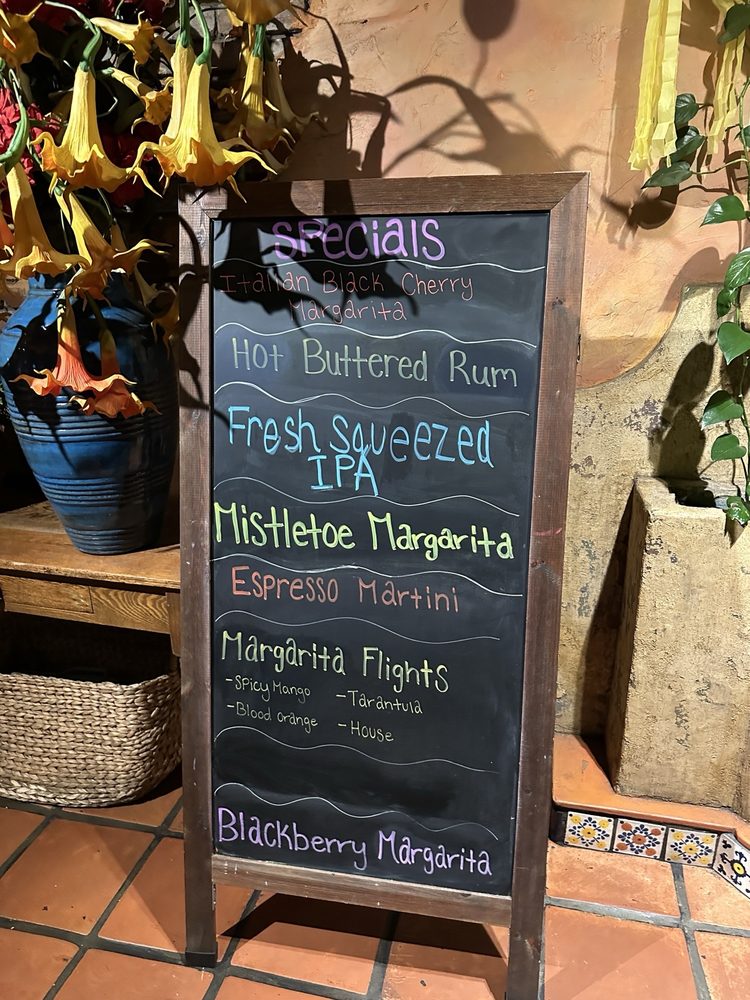 Specials
Italian Black Cherry
Margarita
Hot Buttered Rum
Fresh Squeezed
IPA
Mistletoe Margarita
Espresso Martini
Margarita Flights
-Spicy Mango -Tarantula
-Blood orange -House
Blackberry Margarita